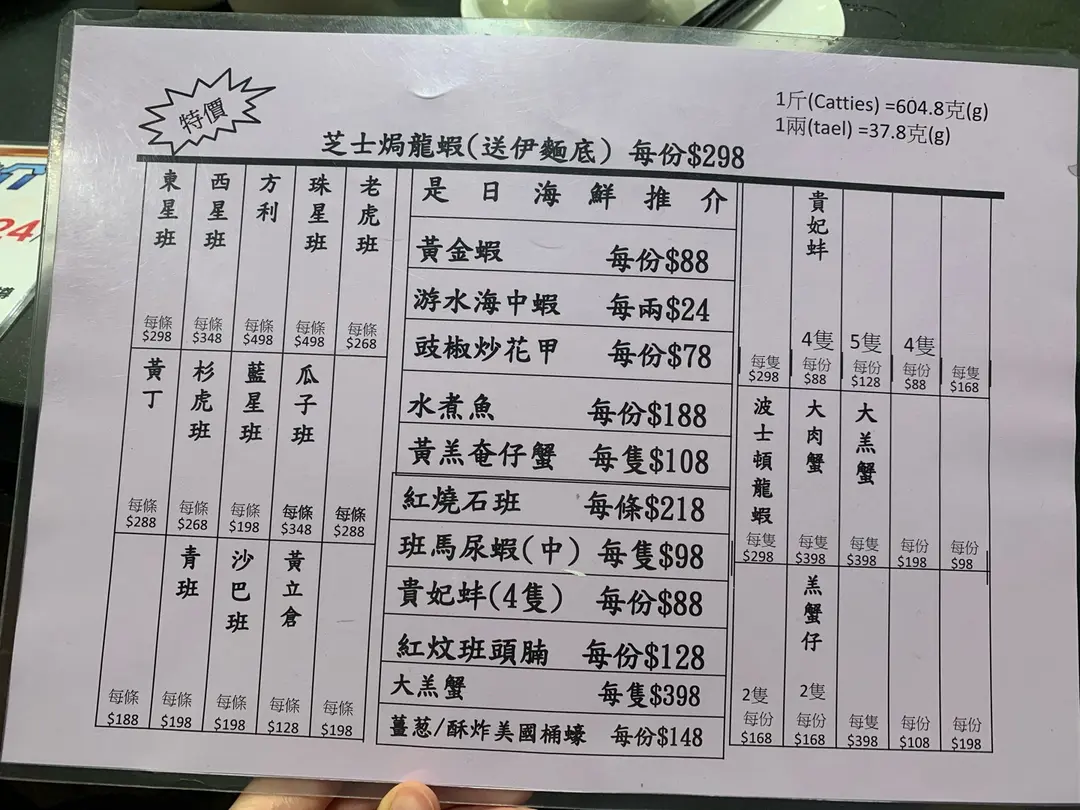 特價
1斤(Catties) =604.8克(g)
1兩(tael) =37.8克(g)
芝士焗龍蝦(送伊麵底) 每份$298
東星班 每條 $298
西星班 每條 $348
方利 每條 $498
珠星班 每條 $498
老虎班 每條 $268
黃丁 每條 $288
杉虎班 每條 $268
藍星班 每條 $198
瓜子班 每條 $348
每條 $288
每條 $188
青班 每條 $198
沙巴班 每條 $198
黃立倉 每條 $128
每條 $198
是日海鮮推介
黃金蝦 每份$88
游水海中蝦 每兩$24
豉椒炒花甲 每份$78
水煮魚 每份$188
黃羔奄仔蟹 每隻$108
紅燒石班 每條$218
班馬尿蝦(中) 每隻$98
貴妃蚌(4隻) 每份$88
紅炆班頭腩 每份$128
大羔蟹 每隻$398
薑葱/酥炸美國桶蠔 每份$148
每隻 $298
貴妃蚌 4隻 每份 $88
5隻 每份 $128
4隻 每份 $88
每隻 $168
波士頓龍蝦 每隻 $298
大肉蟹 每隻 $398
大羔蟹 每隻 $398
每份 $198
每份 $98
2隻 每份 $168
羔蟹仔 2隻 每份 $168
每隻 $398
每份 $108
每份 $198